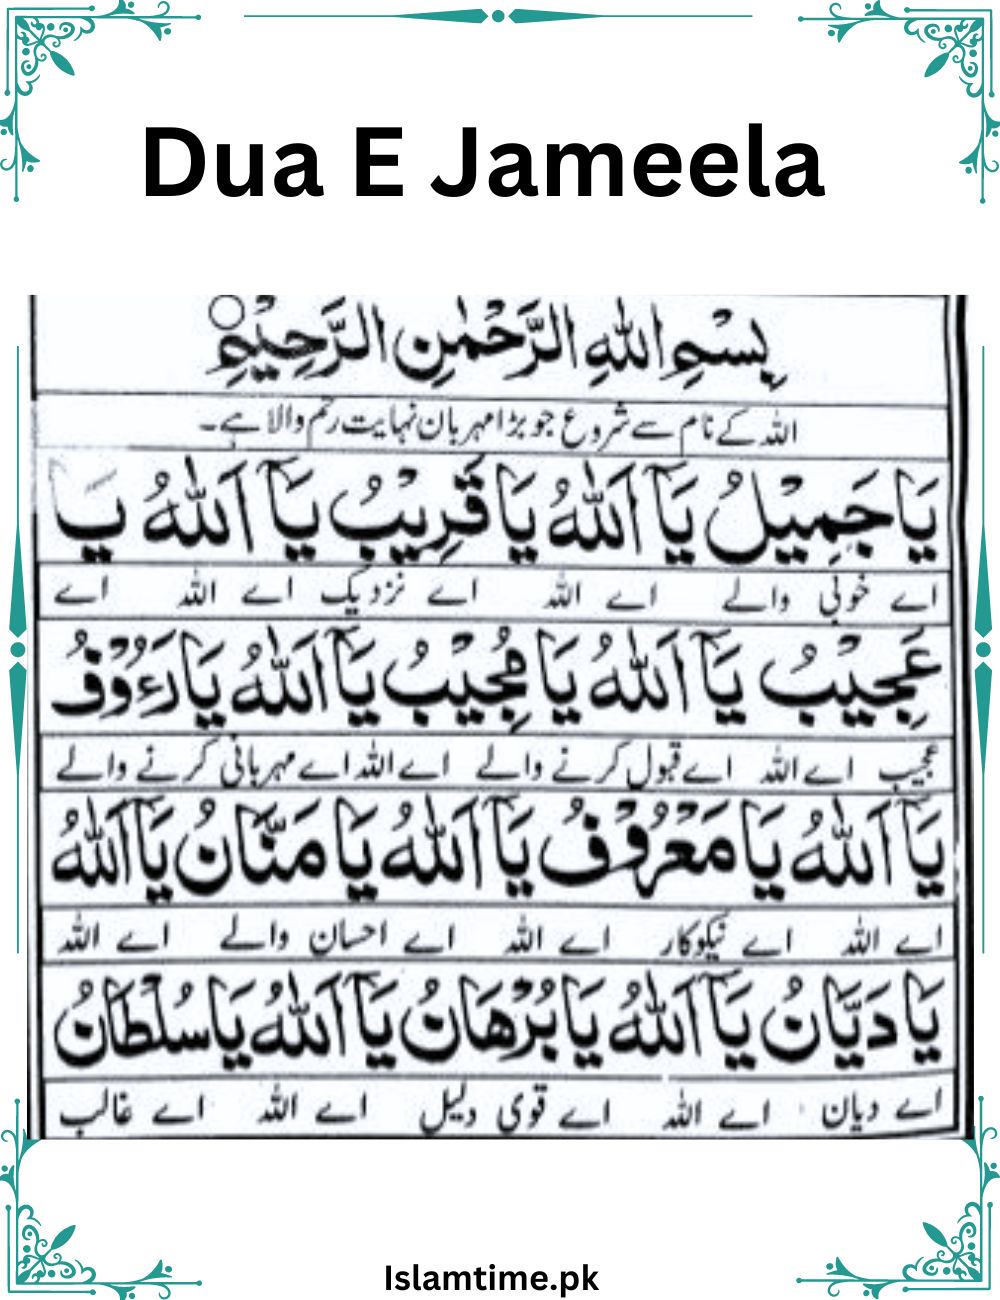 Dua E Jameela
بِسْمِ اللهِ الرَّحْمٰنِ الرَّحِيْمِ
اللہ کے نام سے شروع جو بڑا مہربان نہایت رحم والا ہے۔
يَا جَمِيْلُ يَآ اَللهُ يَا قَرِيْبُ يَآ اَللهُ يَا
اے خوبی والے اے اللہ اے نزدیک اے اللہ اے
عَجِيْبُ يَآ اَللهُ يَا مُجِيْبُ يَآ اَللهُ يَا رَءُوْفُ
عجیب اے اللہ اے قبول کرنے والے اے اللہ اے مہربانی کرنے والے
يَآ اَللهُ يَا مَعْرُوْفُ يَآ اَللهُ يَا مَنَّانُ يَآ اَللهُ
اے اللہ اے نیکوکار اے اللہ اے احسان والے اے اللہ
يَا دَيَّانُ يَآ اَللهُ يَا بُرْهَانُ يَآ اَللهُ يَا سُلْطَانُ
اے دیان اے اللہ اے قوی دلیل اے اللہ اے غالب
Islamtime.pk